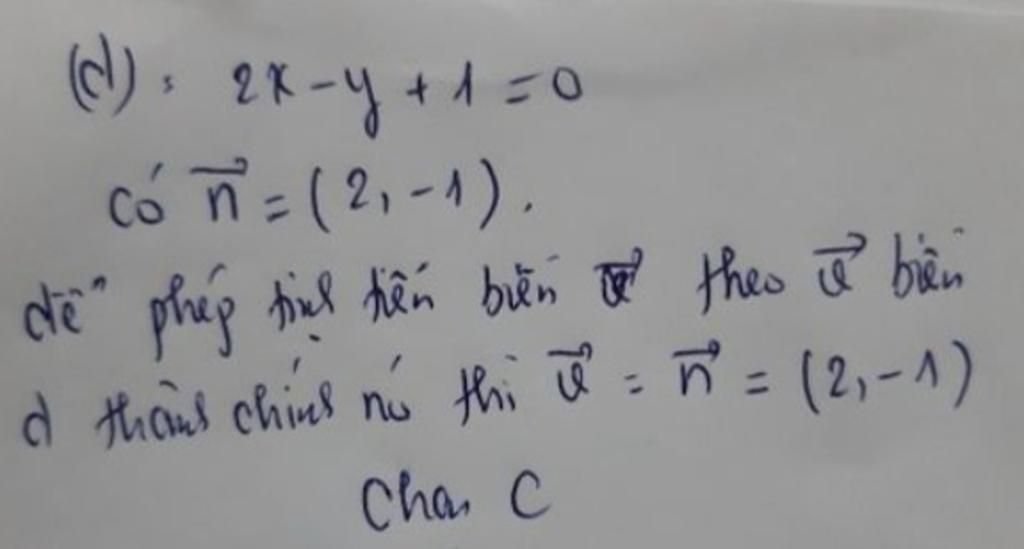 (d): 2x - y + 1 = 0
có n⃗ = (2, -1).
để phép tịnh tiến biến theo v⃗ biến
d thành chính nó thì v⃗ = n⃗ = (2, -1)
Chọn C